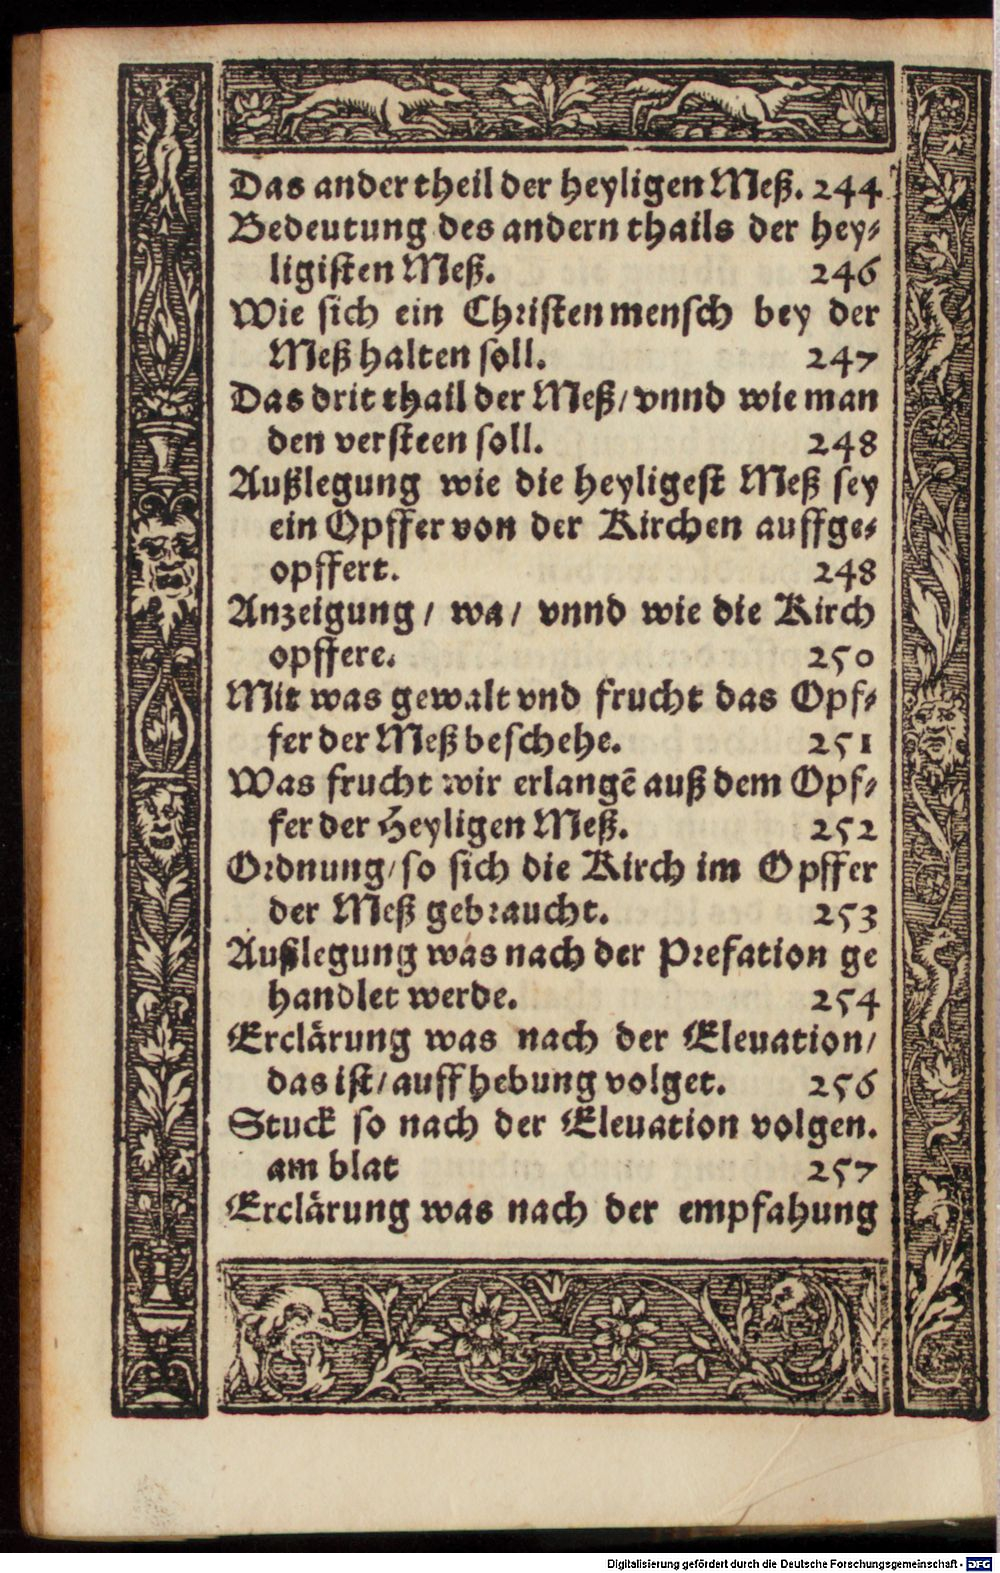 Das ander theil der heyligen Meß. 244
Bedeutung des andern thails der hey-
ligisten Meß. 246
Wie sich ein Christenmensch bey der
Meß halten soll. 247
Das drit thail der Meß/ vnnd wie man
den versteen soll. 248
Außlegung wie die heyligest Meß sey
ein Opffer von der Kirchen auffge-
opffert. 248
Anzeigung / wa / vnnd wie die Kirch
opffere. 250
Mit was gewalt vnd frucht das Opf-
fer der Meß beschehe. 251
Was frucht wir erlangẽ auß dem Opf-
fer der Heyligen Meß. 252
Ordnung/ so sich die Kirch im Opffer
der Meß gebraucht. 253
Außlegung was nach der Prefation ge
handlet werde. 254
Erclärung was nach der Eleuation/
das ist/ auffhebung volget. 256
Stuck so nach der Eleuation volgen.
am blat 257
Erclärung was nach der empfahung
Digitalisierung gefördert durch die Deutsche Forschungsgemeinschaft - DFG